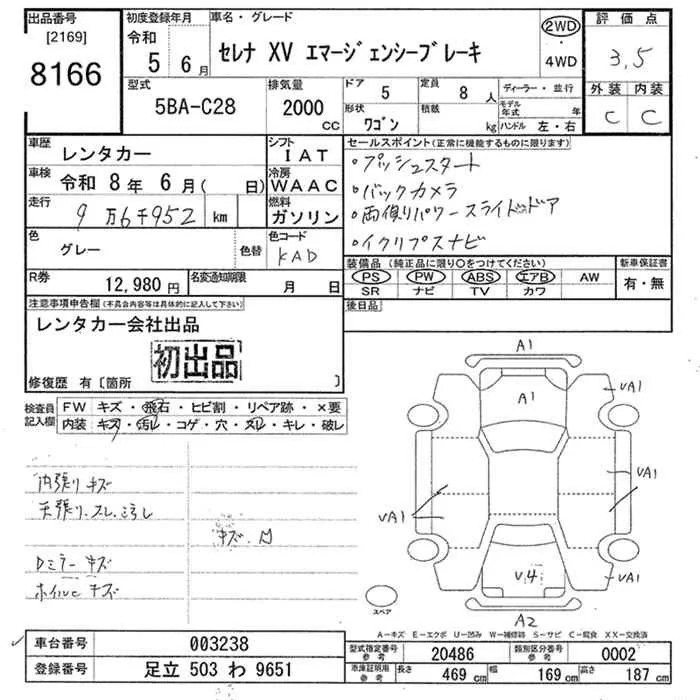 出品番号
[2169]
8166
初度登録年月
令和
5 6月
車名・グレード
セレナ XV エマージェンシーブレーキ
2WD
・
4WD
評価点
3.5
外装 内装
C C
型式
5BA-C28
排気量
2000
CC
ドア
5
形状
ワゴン
定員
8人
積載
kg
ディーラー・並行
モデル年式 年
ハンドル 左・右
車歴
レンタカー
シフト
IAT
車検
令和 8年 6月( 日)
冷房
WAAC
走行
9万6千952 km
燃料
ガソリン
色
グレー
色替
色コード
KAD
R券
12,980円
名変通知期限
月 日
セールスポイント(正常に機能するものに限ります)
・プッシュスタート
・バックカメラ
・両側パワースライドドア
・イクリプスナビ
装備品(純正品に限り○をつけてください)
PS PW ABS エアB AW
SR ナビ TV カワ
新車保証書
有・無
後日品
注意事項申告欄(不具合内容等は具体的に記入して下さい)
レンタカー会社出品
初出品
修復歴 有〔箇所 〕
検査員記入欄
FW キズ・飛石・ヒビ割・リペア跡・×要
内装 キズ・汚レ・コゲ・穴・スレ・キレ・破レ
内張り キズ
天張り、スレ、ヨゴレ
Dミラー キズ
ホイルC キズ
A1
A1
VA1
VA1
VA1
VA1
V.4
A2
スペア
A-キズ E-エクボ U-凹み W-補修跡 S-サビ C-腐食 XX-交換済
車台番号
003238
登録番号
足立 503 わ 9651
型式指定番号
参考
20486
類別区分番号
参考
0002
車庫証明用
参考
長さ
469 cm
幅
169 cm
高さ
187 cm